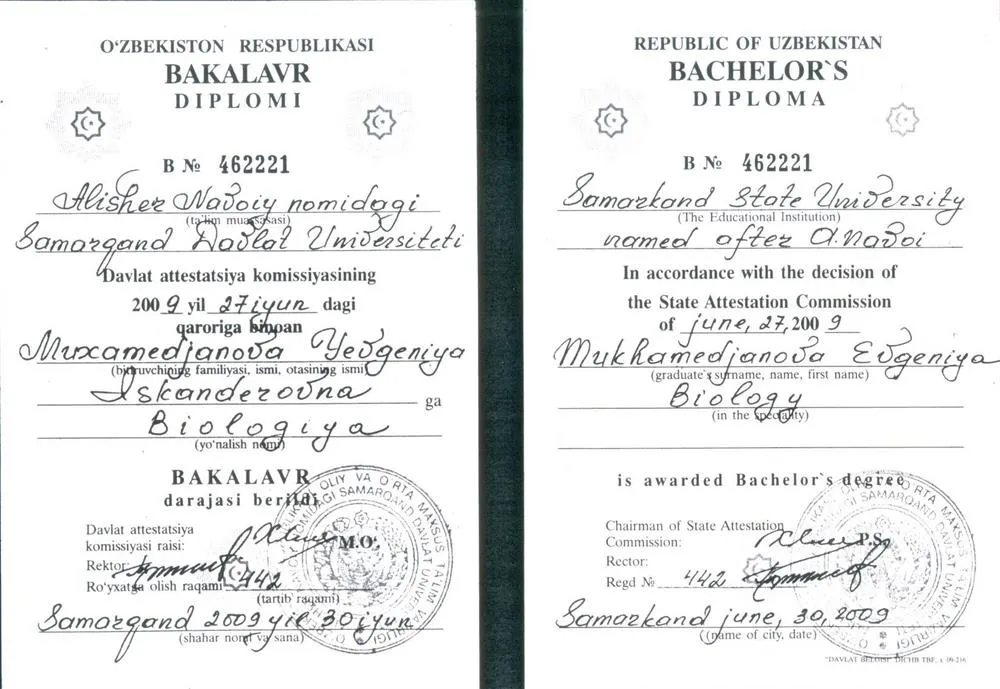 O‘ZBEKISTON RESPUBLIKASI
BAKALAVR
DIPLOMI
B № 462221
Alisher Navoiy nomidagi
(ta’lim muassasasi)
Samarqand Davlat Universiteti
Davlat attestatsiya komissiyasining
2009 yil 27 iyun dagi
qaroriga binoan
Muxamedjanova Yevgeniya
(bitiruvchining familiyasi, ismi, otasining ismi)
Iskanderovna ga
Biologiya
(yo‘nalish nomi)
BAKALAVR
darajasi berildi
Davlat attestatsiya
komissiyasi raisi:
M.O.
Rektor
Ro‘yxatga olish raqami 442
(tartib raqami)
Samarqand 2009 yil 30 iyun
(shahar nomi va sana)
OLIY VA O‘RTA MAXSUS TA’LIM VAZIRLIGI
SAMARQAND DAVLAT
REPUBLIC OF UZBEKISTAN
BACHELOR`S
DIPLOMA
B № 462221
Samarkand State University
(The Educational Institution)
named after A.Navoi
In accordance with the decision of
the State Attestation Commission
of june, 27, 2009
Mukhamedjanova Evgeniya
(graduate`s surname, name, first name)
Biology
(in the speciality)
is awarded Bachelor`s degree
Chairman of State Attestation
Commission:
P.S.
Rector:
Regd № 442
Samarkand june, 30, 2009
((name of city, date)
O‘RTA MAXSUS TA’LIM VAZIRLIGI
SAMARQAND DAVLAT
"DAVLAT BELGISI" DICHB TBF. z. 09-216